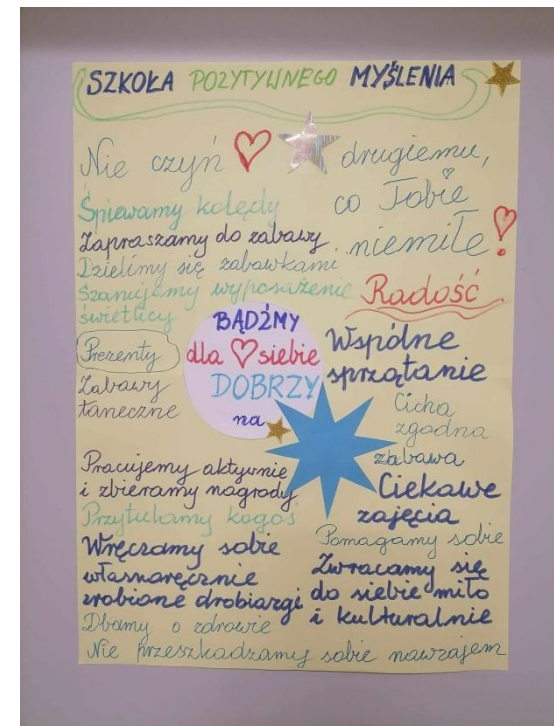 SZKOŁA POZYTYWNEGO MYŚLENIA
Nie czyń drugiemu,
co Tobie
niemiłe!
Śpiewamy kolędy
Zapraszamy do zabawy
Dzielimy się zabawkami
Szanujemy wyposażenie
świetlicy
Radość
Prezenty
Zabawy
taneczne
BĄDŹMY
dla siebie
DOBRZY
na
Wspólne
sprzątanie
Cicha
zgodna
zabawa
Pracujemy aktywnie
i zbieramy nagrody
Przytulamy kogoś
Wręczamy sobie
własnoręcznie
zrobione drobiazgi
Dbamy o zdrowie
Ciekawe
zajęcia
Pomagamy sobie
Zwracamy się
do siebie miło
i kulturalnie
Nie przeszkadzamy sobie nawzajem